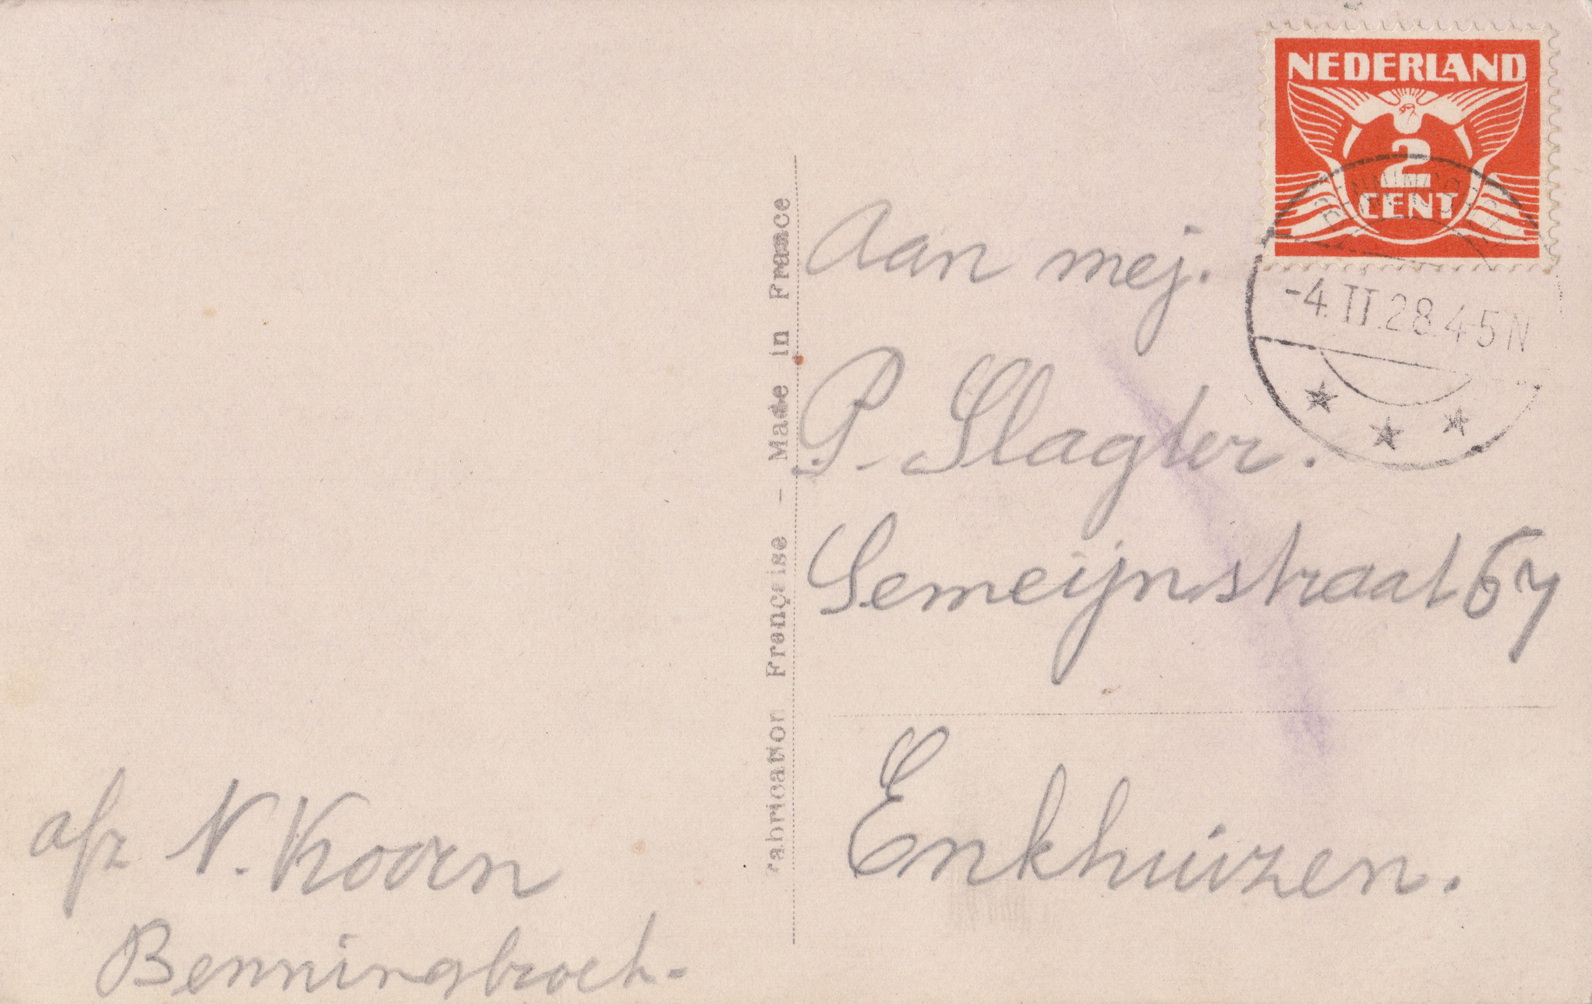 NEDERLAND
2
CENT
-4.II.28.4-5N
Aan mej.
P. Slagter.
Semeijnstraat 67
Enkhuizen.
Fabrication Française – Made in France
afz N. Kooen
Benningbroek.